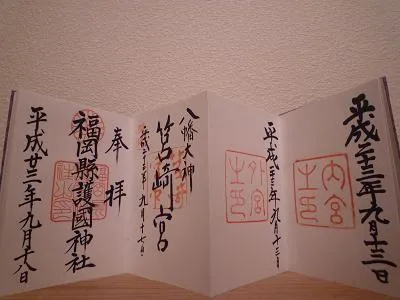 平成二十三年九月十三日
内宮
之印
平成二十三年九月十三日
外宮
之印
八幡大神
筥崎宮
平成二十三年九月十七日
奉拝
福岡縣護國神社
平成廿三年九月十八日